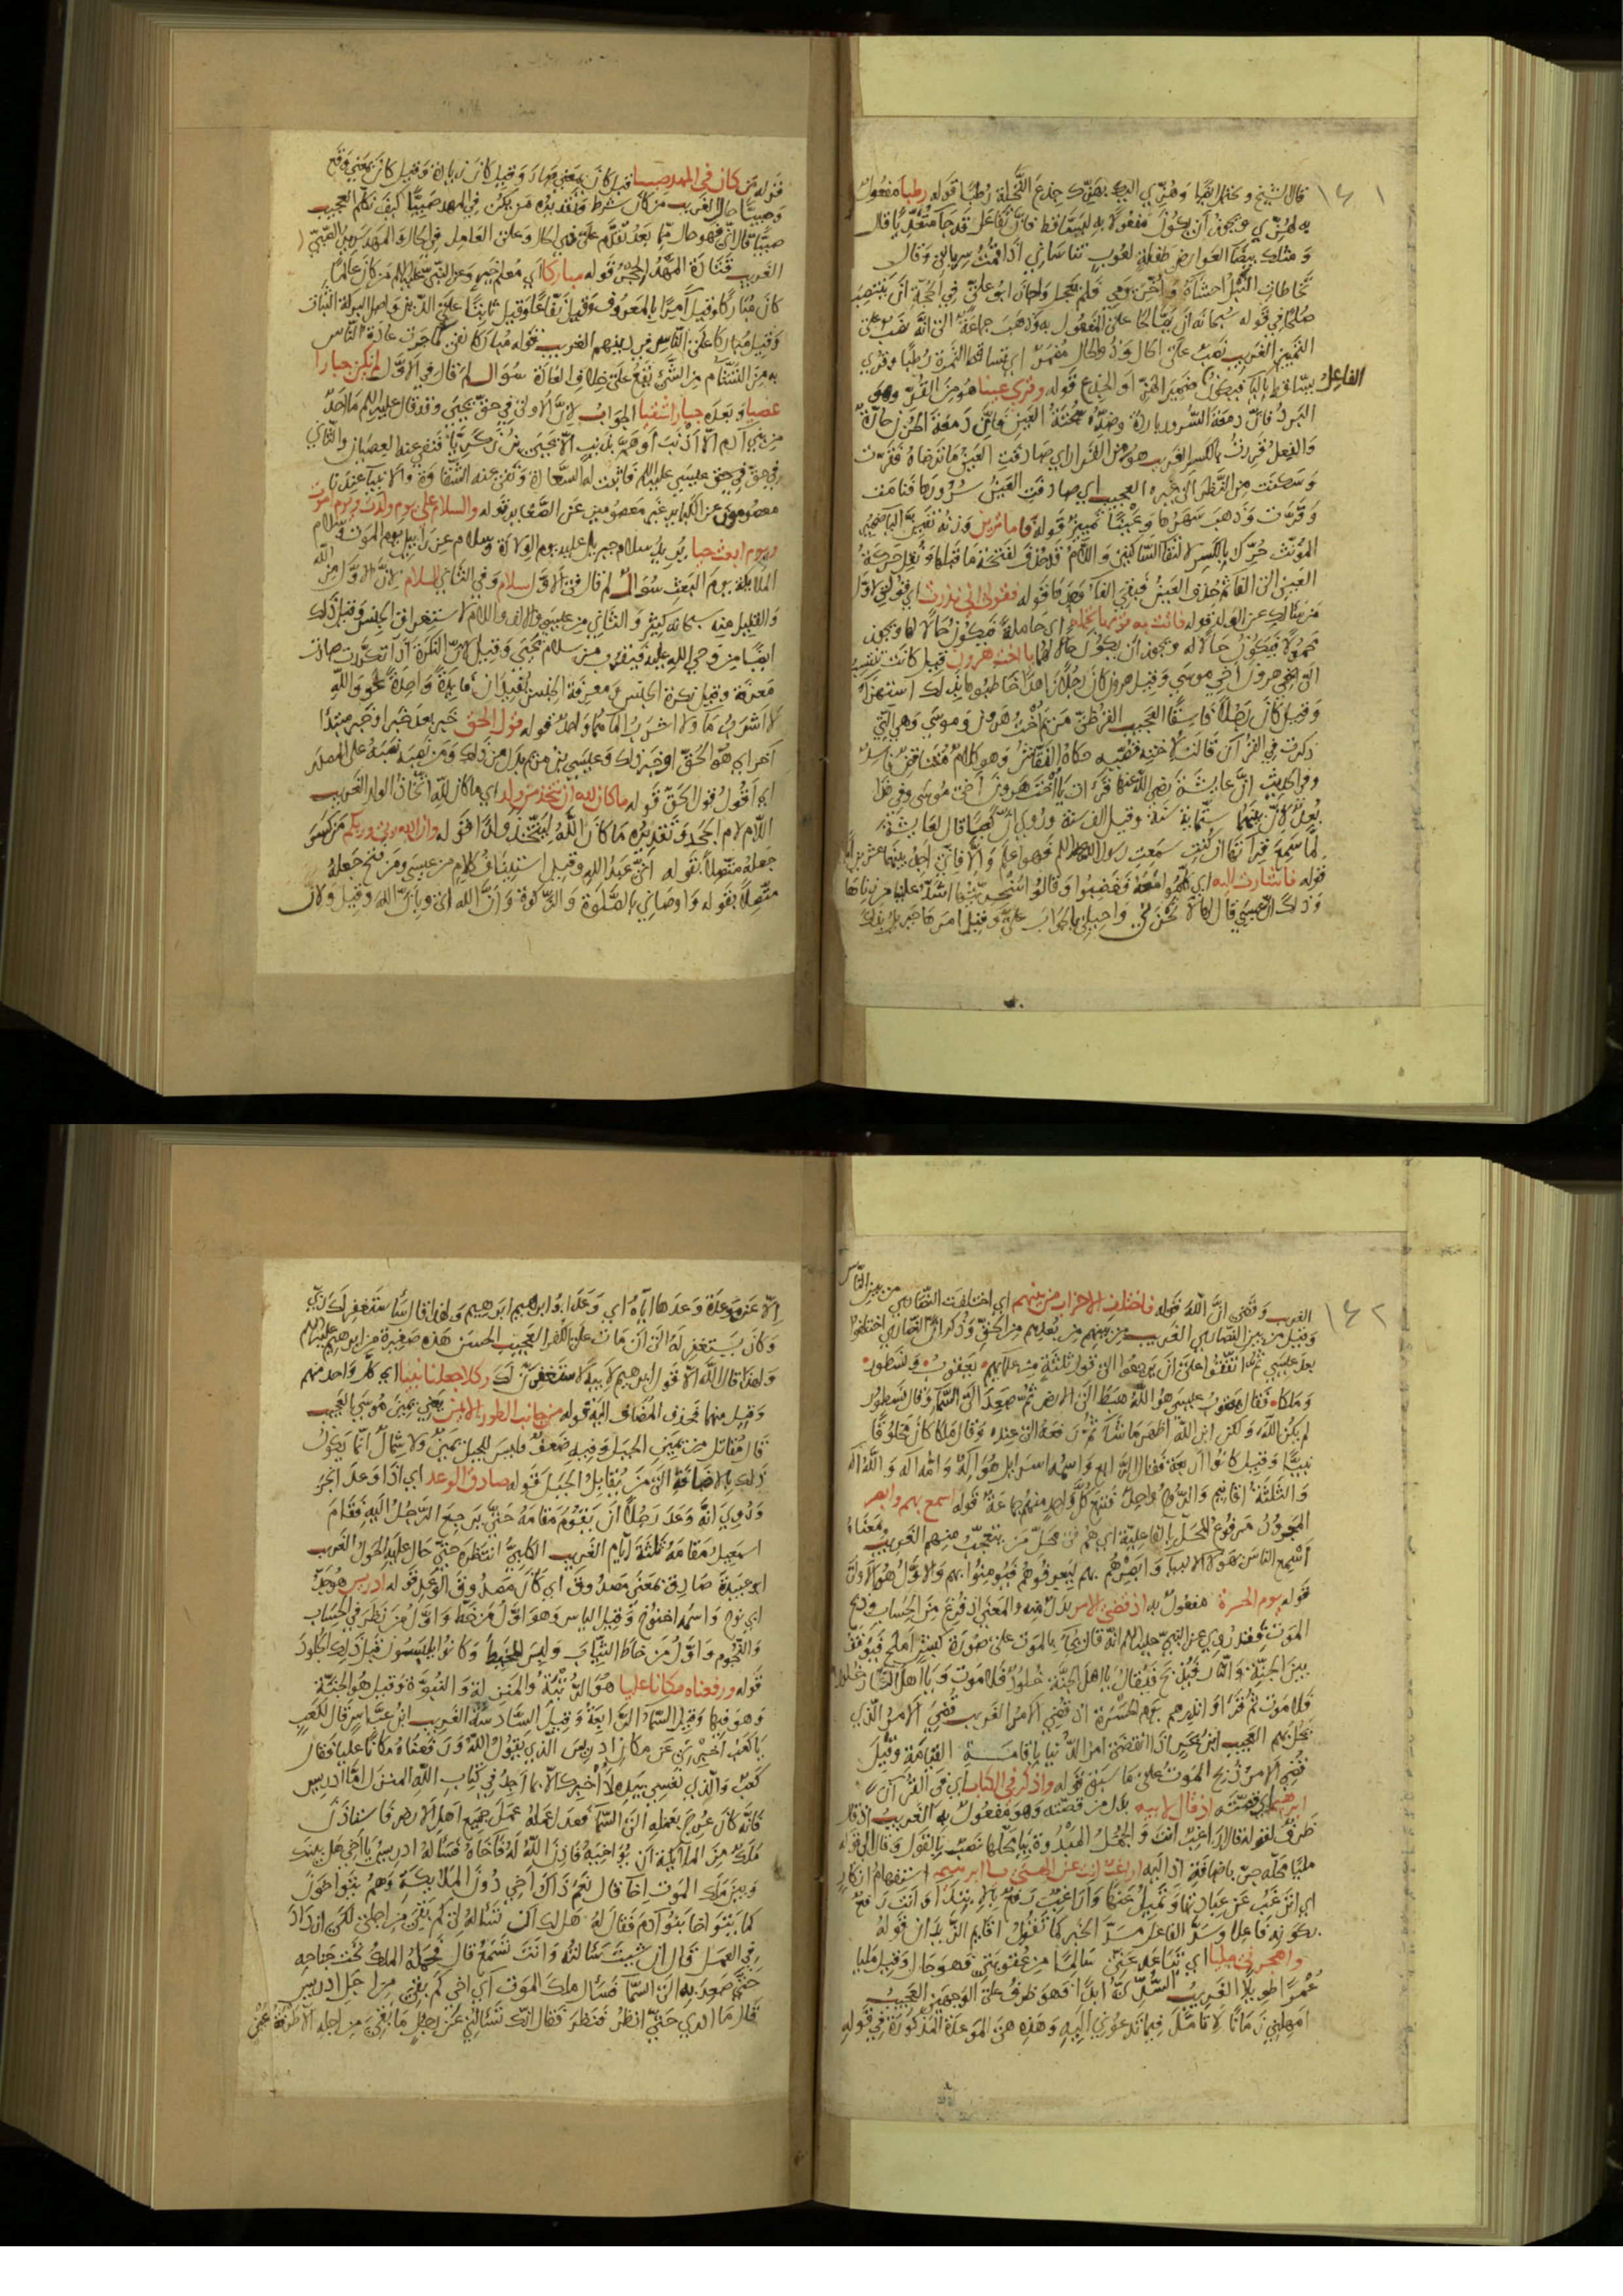 ١٤١
قال الشيخ ويحتمل ايضا وهزي اليك بهزك جذع النخلة رطبا قوله رطبا مفعول
به لهزي ويجوز ان يكون مفعولا به لتساقط فان تفاعل قد جاء متعديا قال
ومثلك بيضاء العوارض طفلة لعوب تناساني اذا قمت سربالي وقال
تخاطات النبل احشاءه واخر يومي فلم يعجل واجاز ابو علي في الحجة ان ينتصب
صلحا في قوله سبحانه ان يصالحا على المفعول به وذهب جماعة الى انه نصب على
التمييز الغريب نصب على الحال وذو الحال مضمر اي تساقط الثمرة رطبا وقرئ
الفاعل
يساقط بالياء فيكون ضمير الهز او الجذع قوله وقري عينا هو من القر وهو
البرد فان دمعة السرور باردة وضده سخنة العين فان دمعة الحزن حارة
والفعل قررت بالكسر الغريب هو من القرار اي صادفت العين ما ترضاه فقرت
وسكنت من النظر الى غيره العجيب اي صادفت العين سرورها فنامت
وقرت وذهب سهرها وعينا تمييز قوله فاما ترين وزنه تفين الياء ضمير
المؤنث حرك بالكسر لالتقاء الساكنين واللام قد حذفت لفتحة ما قبلها ونقل حركة
العين الى الفاء ثم حذف العين فبقي الفاء وحدها قوله فقولي اني نذرت اي قولي لاول
من سالك عن الولد قوله فاتت به قومها تحمله اي حاملة فيكون حالا لها ويجوز
محمولا فيكون حالا له ويجوز ان يكون حالا لهما يا اخت هرون قيل كانت تنتسب
الى اخي هرون اخي موسى وقيل هرون كان رجلا زاهدا خاطبوها بذلك استهزاء
وقيل كان رجلا فاسقا العجيب القرظي مريم اخت هرون وموسى وهي التي
ذكرت في القران قالت لاخته قصيه حكاه النقاش وهو كلام متناقض فاسد
وفي الحديث ان عايشة رضي الله عنها قرات يا اخت هرون اخت موسى وفي هذا
بعد لان بينهما ستماية سنة وقيل الف سنة وروي ان كعبا قال لعايشة
لما سمع قراتها ان كنت سمعت رسول الله عليه السلم فهو اعلم والا فاني اجد بينهما
قوله فاشارت اليه اي كلموا معه فغضبوا وقالوا لسخريتها اشد علينا من زناها
وذلك ان عيسى قال لها لا تحزني واحيلي بالجواب علي وقيل امرها جبريل بذلك
قوله من كان في المهد صبيا قيل كان بمعنى صار وقيل كان زيادة وقيل كان بمعنى وقع
وصبيا حال الغريب من كان شرط وتقديره من يكن في المهد صبيا كيف نكلم العجيب
صبيا قال اني فهو حال مما بعد تقدم على ذي الحال وعلى العامل في الحال والمهد سرير الصبي
الغريب قتادة المهد الحجر قوله مباركا اي معلم خير وعن النبي عليه السلم من كان عالما
كان مباركا وقيل امرا بالمعروف وقيل نفاعا وقيل ثابتا على الدين واصل البركة الثبات
وقيل مباركا على الناس في دينهم الغريب قوله مباركا نفى ما جرت عادة الناس
به من التشاؤم من الشيء يقع على خلاف العادة سؤال لم قال في الاول لم يكن جبارا
عصيا وبعده جبارا شقيا الجواب لان الاولى في حق يحيى وقد قال عليه السلم ما احد
من بني ادم الا اذنب او هم بذنب الا يحيى بن زكريا فنفى عنه العصيان والثاني
في حق عيسى عليه السلم فاثبت له السعادة ونفى عنه الشقاوة والانبياء عندنا
معصومون عن الكبائر غير معصومين عن الصغاير قوله والسلام علي يوم ولدت ويوم اموت
ويوم ابعث حيا يريد سلام جبريل عليه يوم الولادة وسلام عزرائيل يوم الموت وسلام
الملائكة يوم البعث سؤال لم قال في الاول سلام وفي الثاني السلام لان الاول من الله
والقليل منه سبحانه كثير والثاني من عيسى والالف واللام لاستغراق الجنس وقيل ذلك
ايضا من وحي الله عليه فيقرب من سلام يحيى وقيل لان النكرة اذا تكررت صارت
معرفة وقيل نكرة الجنس ومعرفة الجنس تفيدان فايدة واحدة نحو والله
لا اشرب ماء ولا اشرب الماء هما واحد قوله قول الحق خبر بعد خبر او خبر مبتدا
اخر اي هو الحق او خبر ذلك وعيسى بن مريم بدل من ذلك ومن نصبه نصبه على المصدر
اي اقول قول الحق قوله ما كان لله ان يتخذ من ولد اي ما كان لله اتخاذ الولد الغريب
اللام لام الجحد وتقديره ما كان الله ليتخذ ولدا قوله وان الله ربي وربكم من كسر
جعله متصلا بقوله اني عبد الله وقيل استيناف كلام من عيسى ومن فتح جعله
متصلا بقوله واوصاني بالصلوة والزكوة وان الله اي وبان الله وقيل ولان
١٤٢
الغريب وقضى ان الله قوله فاختلف الاحزاب من بينهم اي اختلفت النصارى من بين الناس
وقيل من بين النصارى الغريب من بينهم من بعدهم من الحق وذكر ان النصارى اختلفوا
بعد عيسى ثم اتفقوا على ان يرجعوا الى قول ثلثة من علمائهم يعقوب ونسطور
وملكا فقال يعقوب عيسى هو الله هبط الى الارض ثم صعد الى السماء وقال نسطور
لم يكن الله ولكن ابن الله اظهر ما شاء ثم رفعه الى عنده وقال ملكا كان مخلوقا
نبيا وقيل كانوا اربعة فقال الرابع واسمه اسرايل هو اله وامه اله والله اله
والثلثة اقانيم والروح واحد فتبع كل واحد منهم جماعة قوله اسمع بهم وابصر
المجرور مرفوع المحل بالفاعلية اي هم في محل من يتعجب منهم الغريب معناه
اسمع الناس بهؤلاء الانبياء وابصرهم بهم ليعرفوهم فيؤمنوا بهم والاول هو الاولى
قوله يوم الحسرة مفعول به اذ قضي الامر بدل منه والمعنى اذ فرغ من الحساب وذبح
الموت فقد روي عن النبي عليه السلم انه قال يجاء بالموت على صورة كبش املح فيوقف
بين الجنة والنار فيذبح فيقال يا اهل الجنة خلود فلا موت ويا اهل النار خلود
فلا موت ثم قرا وانذرهم يوم الحسرة اذ قضي الامر الغريب قضي الامر الذي
يحل بهم العجيب ابن بحر اذا انقضى امر الدنيا باقامة القيامة وقيل
قضي الامر ذبح الموت على ما سبق قوله واذكر في الكتاب اي في القران
ابرهيم اي قصته اذ قال لابيه بدل من قصته وهو مفعول به الغريب اذ قال
ظرف لقوله قال اراغب انت والجمل المبدوة بيا كلها نصب بالقول وقال الى قوله
مليا محله جر باضافة اذ اليه اراغب انت عن الهتي يا ابرهيم استفهام انكار
اي اترغب عن عبادتها وتميل عنها واراغب رفع بالابتداء وانت رفع
بكونه فاعلا وسد الفاعل مسد الخبر كما تقول اقايم الزيدان قوله
واهجرني مليا اي تباعد عني سالما من عقوبتي فهو حال وقيل مليا
عمرا طويلا الغريب السدي ابدا فهو ظرف على الوجهين العجيب
امهلني زمانا لاتامل فيما تدعوني اليه وهذه هي الموعدة المذكورة في قوله
الا عن موعدة وعدها اياه اي وعد ابو ابرهيم ابرهيم ولهذا قال ساستغفر لك ربي
وكان يستغفر له الى ان مات على الكفر العجيب الحسن هذه صغيرة من ابرهيم عليه السلم
ولهذا قال الله الا قول ابرهيم لابيه لاستغفرن لك وكلا جعلنا نبيا اي كل واحد منهم
وقيل منهما فحذف المضاف اليه قوله من جانب الطور الايمن يعني يمين موسى العجيب
قال مقاتل من يمين الجبل وفيه ضعف فليس للجبل يمين ولا شمال انما يكون
ذلك بالاضافة الى من يقابل الجبل قوله صادق الوعد اي اذا وعد انجز
وروي انه وعد رجلا ان يقوم مقامه حتى يرجع الرجل اليه فقام
اسمعيل مقامه ثلثة ايام الغريب الكلبي انتظره حتى حال عليه الحول الغريب
ابو عبيدة صادق بمعنى مصدوق اي كان مصدوق الوعد قوله ادريس هو جد
ابي نوح واسمه اخنوخ وقيل الياس وهو اول من خط واول من نظر في الحساب
والنجوم واول من خاط الثياب ولبس المخيط وكانوا يلبسون قبل ذلك الجلود
قوله ورفعناه مكانا عليا هو الرتبة والمنزلة والنبوة وقيل هو الجنة
وهو فيها وقيل السماء الرابعة وقيل السادسة الغريب ابن عباس قال لكعب
يا كعب اخبرني عن مكان ادريس الذي يقول الله ورفعناه مكانا عليا فقال
كعب والذي نفسي بيده لا اخبرك الا بما اجد في كتاب الله المنزل اما ادريس
فانه كان عرج بعمله الى السماء فعدل عمله عمل جميع اهل الارض فاستاذن
ملك من الملائكة ان يؤاخيه فاذن الله له فاخاه فساله ادريس يا اخي هل بينك
وبين ملك الموت اخاء قال نعم ذاك اخي دون الملايكة وهم بنو اخوة
كما بنو اخا بنو ادم فقال له هل لك ان تساله لي كم بقي من اجلي لكي ازداد
في العمل قال ان شيت سالته وانت تسمع قال فحمله الملك تحت جناحه
حتى صعد به الى السماء فسال ملك الموت اي اخي كم بقي من اجل ادريس
قال ما ادري حتى انظر فنظر فقال انك تسالني عن رجل ما بقي من اجله الا طرفة عين